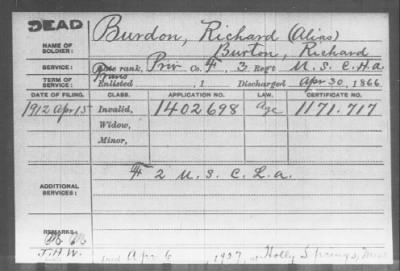 DEAD
Burdon, Richard (Alias)
NAME OF SOLDIER:
Burton, Richard
SERVICE:
rank, Priv Co. F, 3 Reg't U. S. C. H. a.
TERM OF SERVICE:
Enlisted , 1 Discharged Apr 30, 1866
DATE OF FILING. CLASS. APPLICATION NO. LAW. CERTIFICATE NO.
1912 Apr 15 Invalid, 1402698 age 1171.717
Widow,
Minor,
ADDITIONAL SERVICES:
F 2 U. S. C. L. a.
REMARKS:
J.H.W. Died Apr 6, 1927, at Holly Springs, Miss